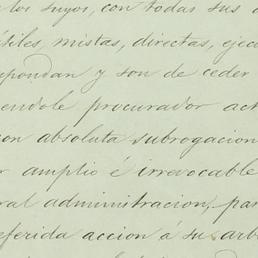 los suyos, con todas sus
útiles, mistas, directas, ejec
spondan y son de ceder
endole procurador act
con absoluta subrogacion
r amplio é irrevocable
ral administracion, par
eferida accion á su arb